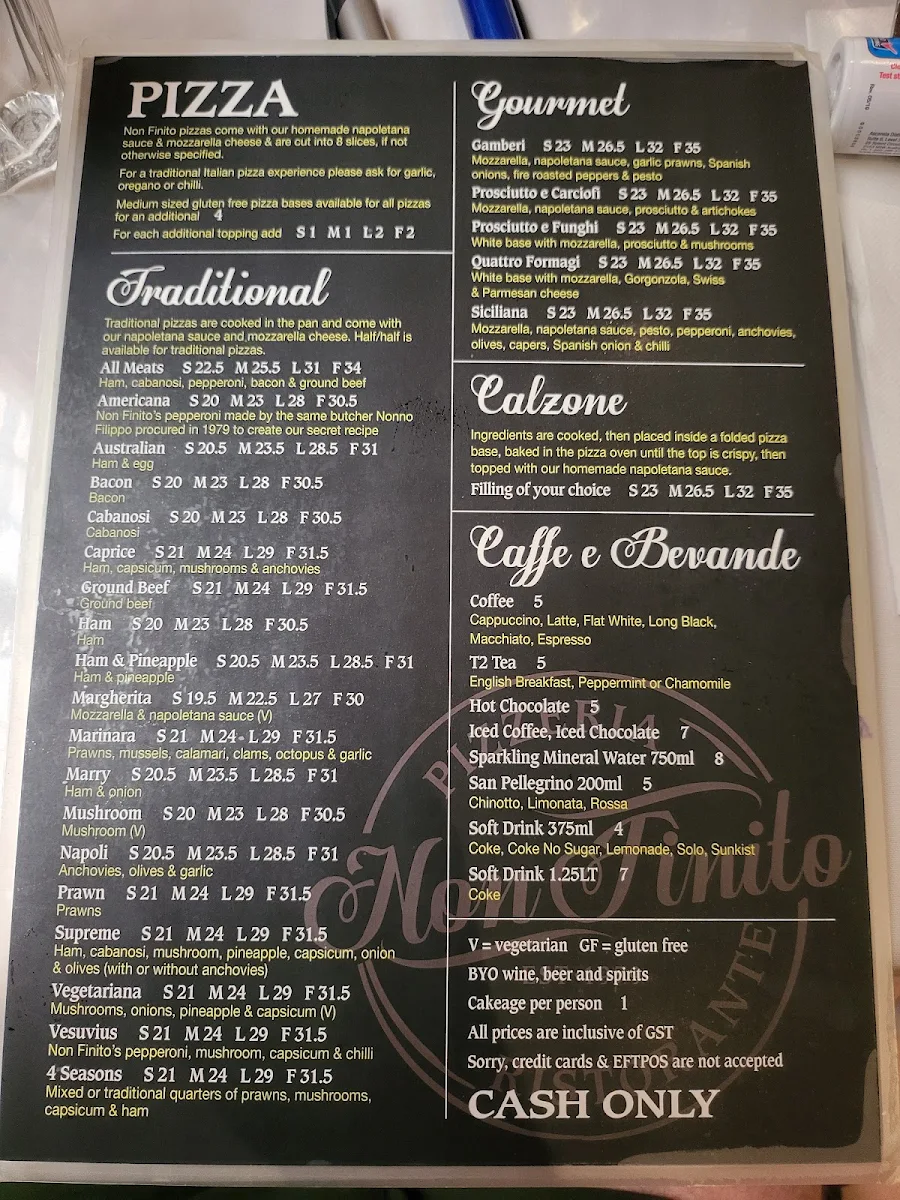 PIZZA
Non Finito pizzas come with our homemade napoletana
sauce & mozzarella cheese & are cut into 8 slices, if not
otherwise specified.
For a traditional Italian pizza experience please ask for garlic,
oregano or chilli.
Medium sized gluten free pizza bases available for all pizzas
for an additional 4
For each additional topping add S 1 M 1 L 2 F 2
Traditional
Traditional pizzas are cooked in the pan and come with
our napoletana sauce and mozzarella cheese. Half/half is
available for traditional pizzas.
All Meats S 22.5 M 25.5 L 31 F 34
Ham, cabanosi, pepperoni, bacon & ground beef
Americana S 20 M 23 L 28 F 30.5
Non Finito's pepperoni made by the same butcher Nonno
Filippo procured in 1979 to create our secret recipe
Australian S 20.5 M 23.5 L 28.5 F 31
Ham & egg
Bacon S 20 M 23 L 28 F 30.5
Bacon
Cabanosi S 20 M 23 L 28 F 30.5
Cabanosi
Caprice S 21 M 24 L 29 F 31.5
Ham, capsicum, mushrooms & anchovies
Ground Beef S 21 M 24 L 29 F 31.5
Ground beef
Ham S 20 M 23 L 28 F 30.5
Ham
Ham & Pineapple S 20.5 M 23.5 L 28.5 F 31
Ham & pineapple
Margherita S 19.5 M 22.5 L 27 F 30
Mozzarella & napoletana sauce (V)
Marinara S 21 M 24 L 29 F 31.5
Prawns, mussels, calamari, clams, octopus & garlic
Marry S 20.5 M 23.5 L 28.5 F 31
Ham & onion
Mushroom S 20 M 23 L 28 F 30.5
Mushroom (V)
Napoli S 20.5 M 23.5 L 28.5 F 31
Anchovies, olives & garlic
Prawn S 21 M 24 L 29 F 31.5
Prawns
Supreme S 21 M 24 L 29 F 31.5
Ham, cabanosi, mushroom, pineapple, capsicum, onion
& olives (with or without anchovies)
Vegetariana S 21 M 24 L 29 F 31.5
Mushrooms, onions, pineapple & capsicum (V)
Vesuvius S 21 M 24 L 29 F 31.5
Non Finito's pepperoni, mushroom, capsicum & chilli
4 Seasons S 21 M 24 L 29 F 31.5
Mixed or traditional quarters of prawns, mushrooms,
capsicum & ham
Gourmet
Gamberi S 23 M 26.5 L 32 F 35
Mozzarella, napoletana sauce, garlic prawns, Spanish
onions, fire roasted peppers & pesto
Prosciutto e Carciofi S 23 M 26.5 L 32 F 35
Mozzarella, napoletana sauce, prosciutto & artichokes
Prosciutto e Funghi S 23 M 26.5 L 32 F 35
White base with mozzarella, prosciutto & mushrooms
Quattro Formagi S 23 M 26.5 L 32 F 35
White base with mozzarella, Gorgonzola, Swiss
& Parmesan cheese
Siciliana S 23 M 26.5 L 32 F 35
Mozzarella, napoletana sauce, pesto, pepperoni, anchovies,
olives, capers, Spanish onion & chilli
Calzone
Ingredients are cooked, then placed inside a folded pizza
base, baked in the pizza oven until the top is crispy, then
topped with our homemade napoletana sauce.
Filling of your choice S 23 M 26.5 L 32 F 35
Caffe e Bevande
Coffee 5
Cappuccino, Latte, Flat White, Long Black,
Macchiato, Espresso
T2 Tea 5
English Breakfast, Peppermint or Chamomile
Hot Chocolate 5
Iced Coffee, Iced Chocolate 7
Sparkling Mineral Water 750ml 8
San Pellegrino 200ml 5
Chinotto, Limonata, Rossa
Soft Drink 375ml 4
Coke, Coke No Sugar, Lemonade, Solo, Sunkist
Soft Drink 1.25LT 7
Coke
V = vegetarian GF = gluten free
BYO wine, beer and spirits
Cakeage per person 1
All prices are inclusive of GST
Sorry, credit cards & EFTPOS are not accepted
CASH ONLY
PIZZERIA
Non Finito
RISTORANTE